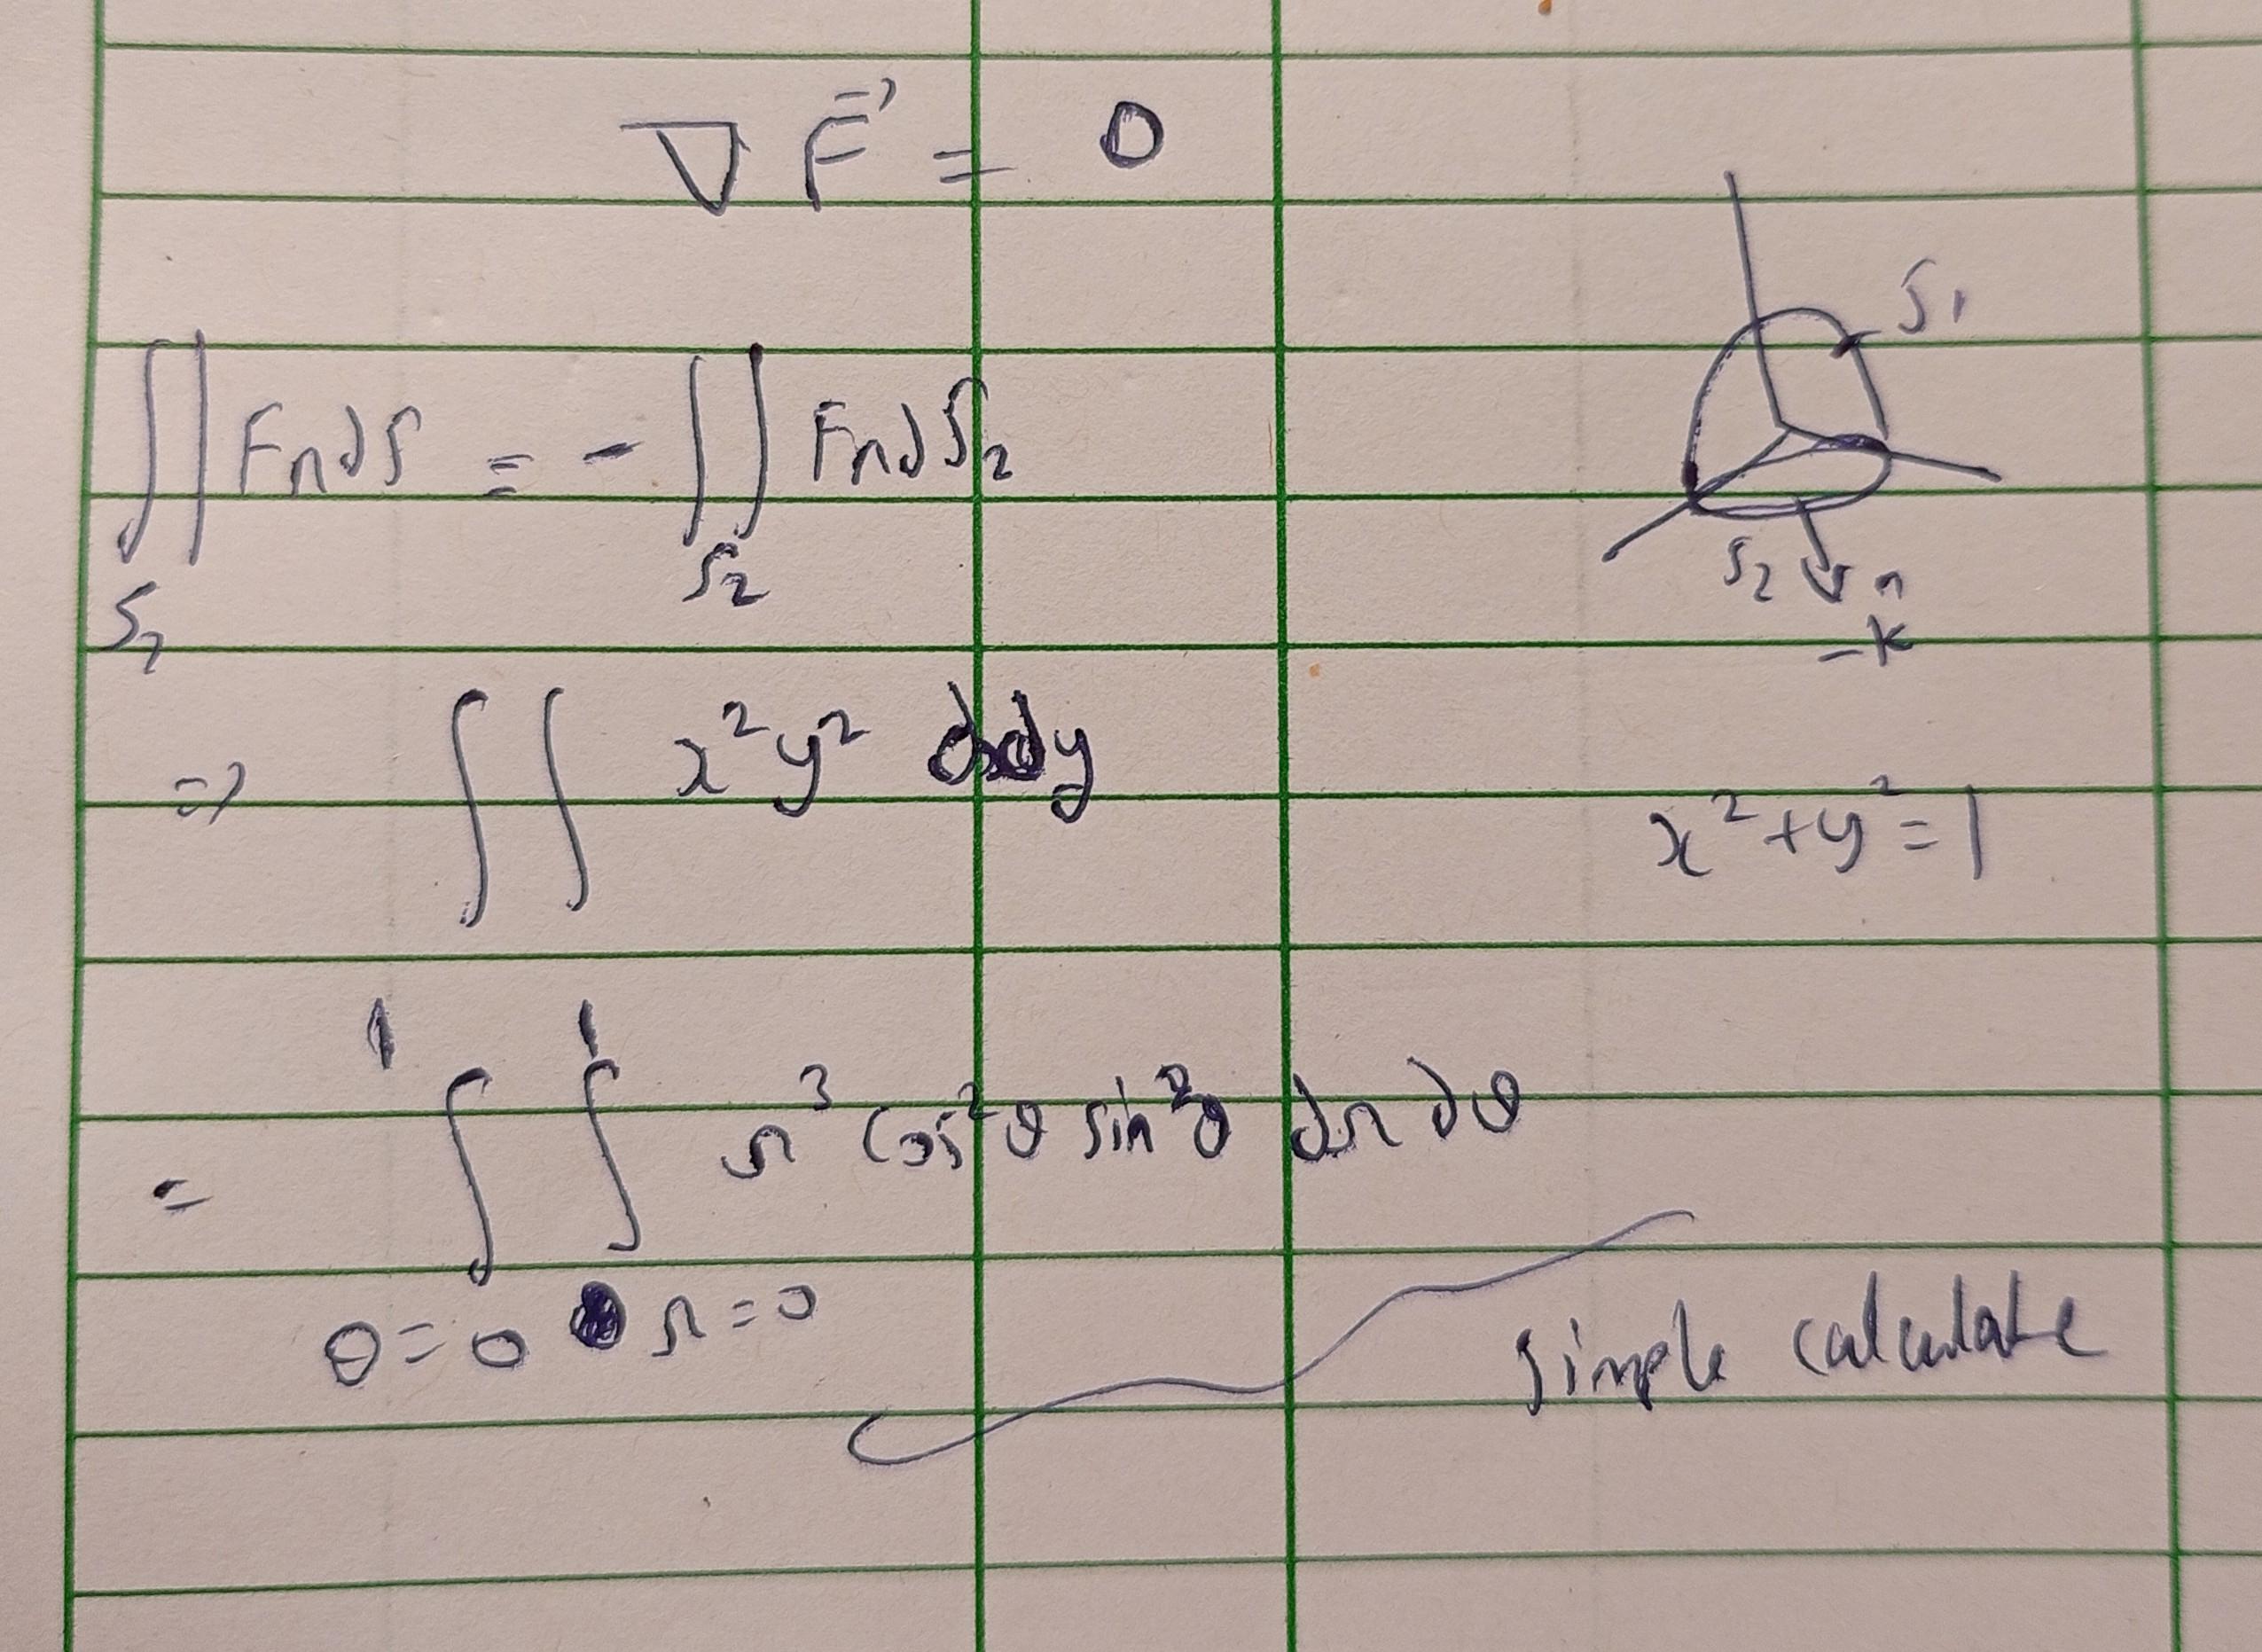 ∇ F⃗ = 0
S1
∬ F n dS = - ∬ F n dS2
S1 S2
S2 n
-k
=> ∬ x² y² dxdy
x² + y² = 1
1 1
= ∬ r³ cos²θ sin²θ dr dθ
θ=0 r=0
simple calculate